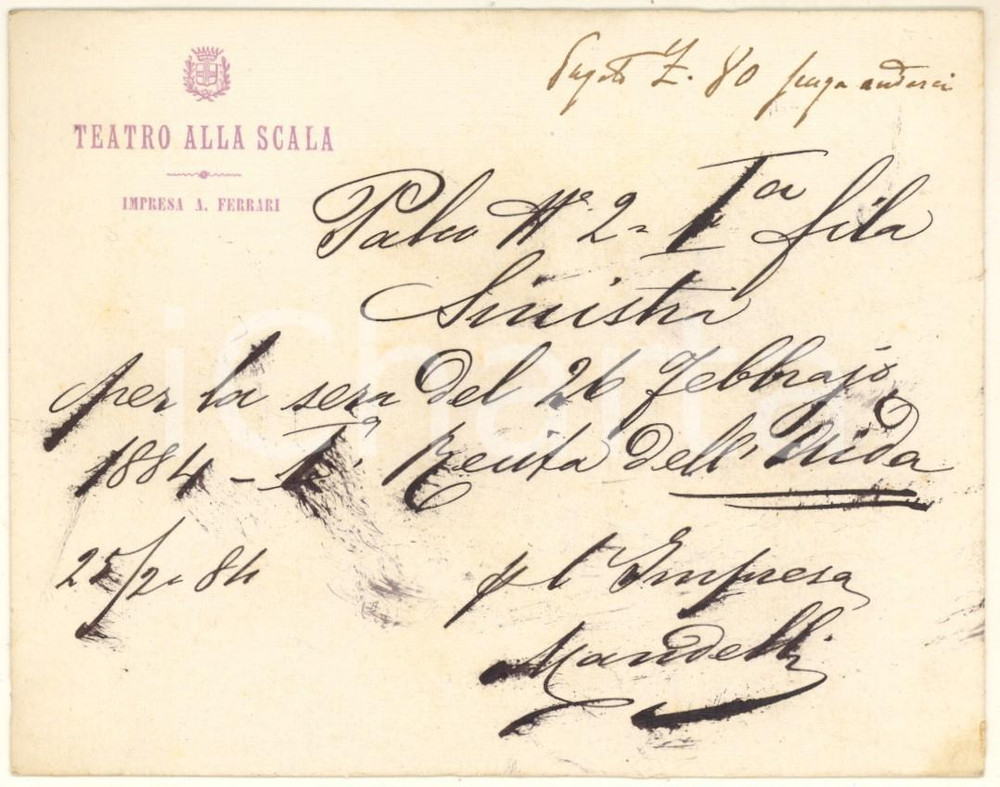 Pagato £. 80 senza andarci
TEATRO ALLA SCALA
IMPRESA A. FERRARI
Palco N° 2 - Iª fila
Sinistra
per la sera del 26 Febbrajo
1884 - Iª Recita dell'Aida
25/2 84
p l'Impresa
Mandelli
iCharta